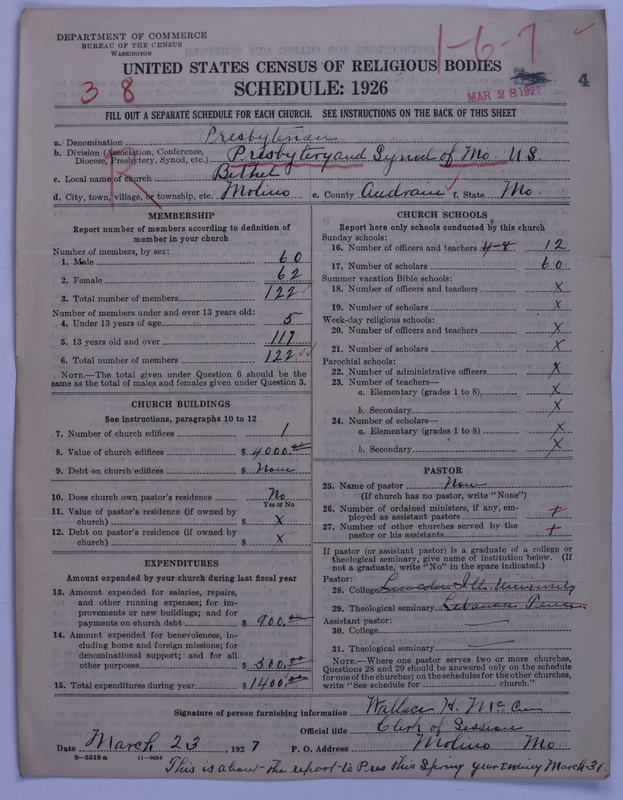 DEPARTMENT OF COMMERCE
BUREAU OF THE CENSUS
WASHINGTON
1-6-7
UNITED STATES CENSUS OF RELIGIOUS BODIES
SCHEDULE: 1926
3 8
MAR 28 1927
4
FILL OUT A SEPARATE SCHEDULE FOR EACH CHURCH. SEE INSTRUCTIONS ON THE BACK OF THIS SHEET
a. Denomination Presbyterian
b. Division (Association, Conference, Diocese, Presbytery, Synod, etc.) Presbytery and Synod of Mo. U.S.
c. Local name of church Bethel
d. City, town, village, or township, etc. Molino e. County Audrain f. State Mo.
MEMBERSHIP
Report number of members according to definition of member in your church
Number of members, by sex:
1. Male 60
2. Female 62
3. Total number of members 122
Number of members under and over 13 years old:
4. Under 13 years of age 5
5. 13 years old and over 117
6. Total number of members 122
NOTE.—The total given under Question 6 should be the same as the total of males and females given under Question 3.
CHURCH BUILDINGS
See instructions, paragraphs 10 to 12
7. Number of church edifices 1
8. Value of church edifices $ 4000.00
9. Debt on church edifices $ None
10. Does church own pastor's residence No
Yes or No
11. Value of pastor's residence (if owned by church) $ X
12. Debt on pastor's residence (if owned by church) $ X
EXPENDITURES
Amount expended by your church during last fiscal year
13. Amount expended for salaries, repairs, and other running expenses; for improvements or new buildings; and for payments on church debt $ 900.00
14. Amount expended for benevolences, including home and foreign missions; for denominational support; and for all other purposes $ 500.00
15. Total expenditures during year $ 1400.00
CHURCH SCHOOLS
Report here only schools conducted by this church
Sunday schools:
16. Number of officers and teachers 4-8 12
17. Number of scholars 60
Summer vacation Bible schools:
18. Number of officers and teachers X
19. Number of scholars X
Week-day religious schools:
20. Number of officers and teachers X
21. Number of scholars X
Parochial schools:
22. Number of administrative officers X
23. Number of teachers—
a. Elementary (grades 1 to 8) X
b. Secondary X
24. Number of scholars—
a. Elementary (grades 1 to 8) X
b. Secondary X
PASTOR
25. Name of pastor None
(If church has no pastor, write "None")
26. Number of ordained ministers, if any, employed as assistant pastors +
27. Number of other churches served by the pastor or his assistants +
If pastor (or assistant pastor) is a graduate of a college or theological seminary, give name of institution below. (If not a graduate, write "No" in the space indicated.)
Pastor:
28. College Lincoln Ills. University
29. Theological seminary Lebanon Tenn
Assistant pastor:
30. College
31. Theological seminary
NOTE.—Where one pastor serves two or more churches, Questions 28 and 29 should be answered only on the schedule for one of the churches; on the schedules for the other churches, write "See schedule for church."
Signature of person furnishing information Wallace H.
Official title Clerk of Session
Date March 23, 1927 P. O. Address Molino Mo.
8-5518a 11-9054
This is about the report to Pres this Spring year Ending March 31.